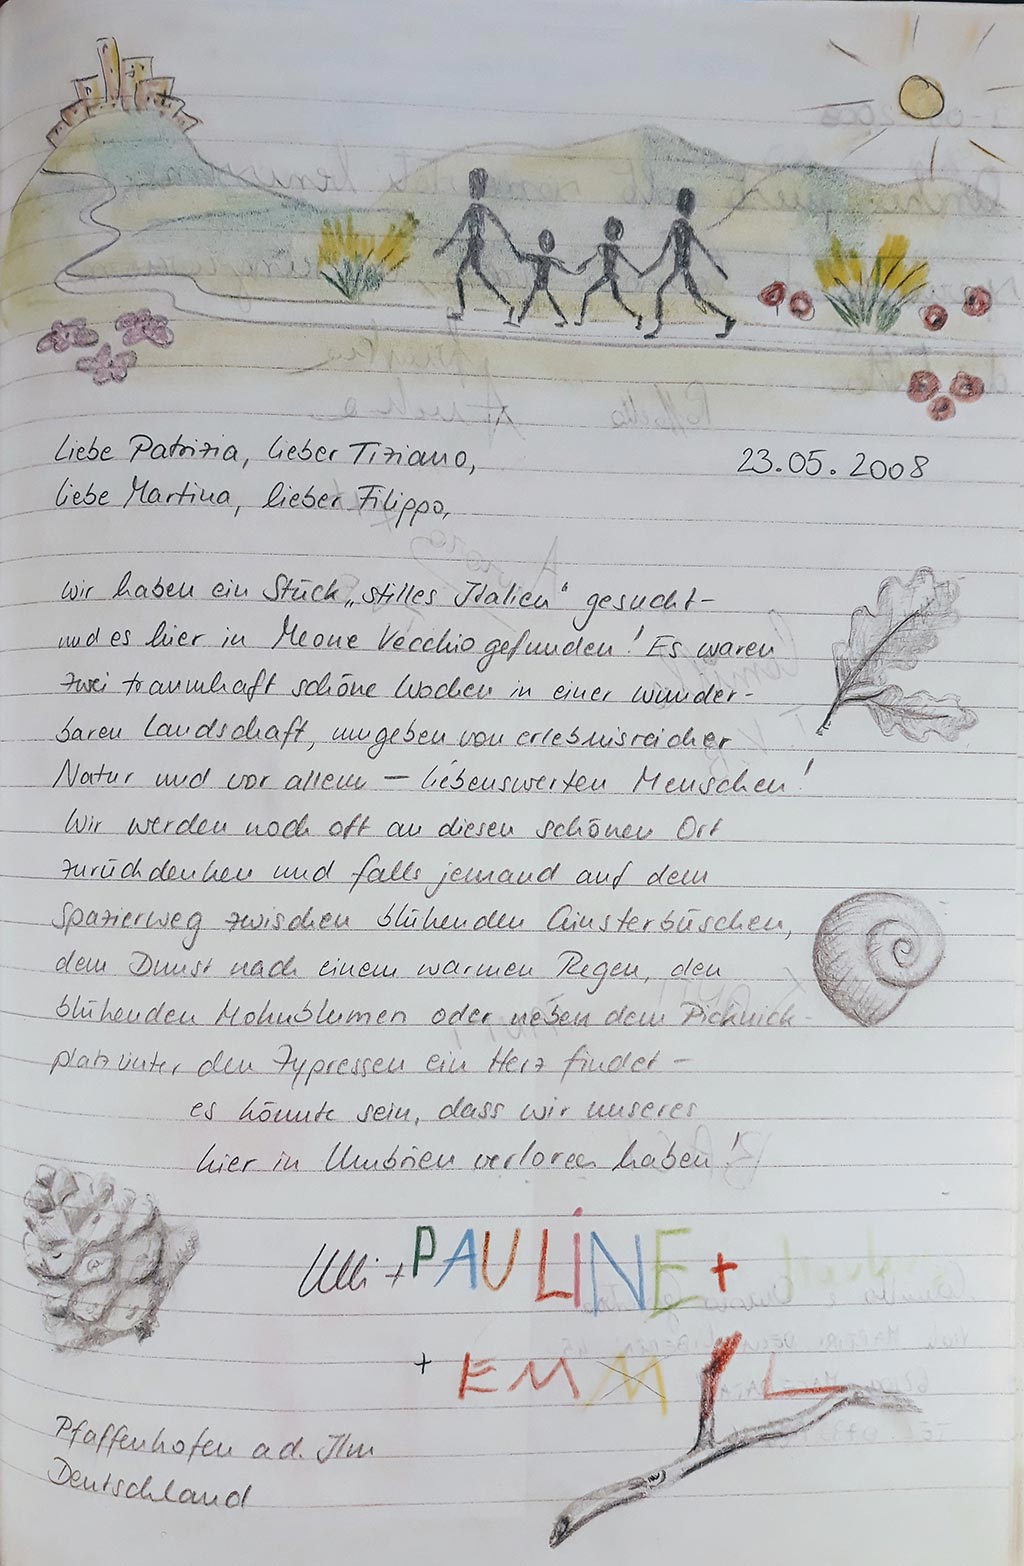 Liebe Patrizia, lieber Tiziano,
23.05.2008
liebe Martina, lieber Filippo,
wir haben ein Stück „stilles Italien“ gesucht –
und es hier in Meone Vecchio gefunden! Es waren
zwei traumhaft schöne Wochen in einer wunder-
baren Landschaft, umgeben von erlebnisreicher
Natur und vor allem – liebenswerten Menschen!
Wir werden noch oft an diesen schönen Ort
zurückdenken und falls jemand auf dem
Spazierweg zwischen blühenden Ginsterbüschen,
dem Dunst nach einem warmen Regen, den
blühenden Mohnblumen oder neben dem Picknick-
platz unter den Zypressen ein Herz findet –
es könnte sein, dass wir unseres
hier in Umbrien verloren haben!
Ulli + PAULINE +
+ EMMIL
Pfaffenhofen a.d. Ilm
Deutschland